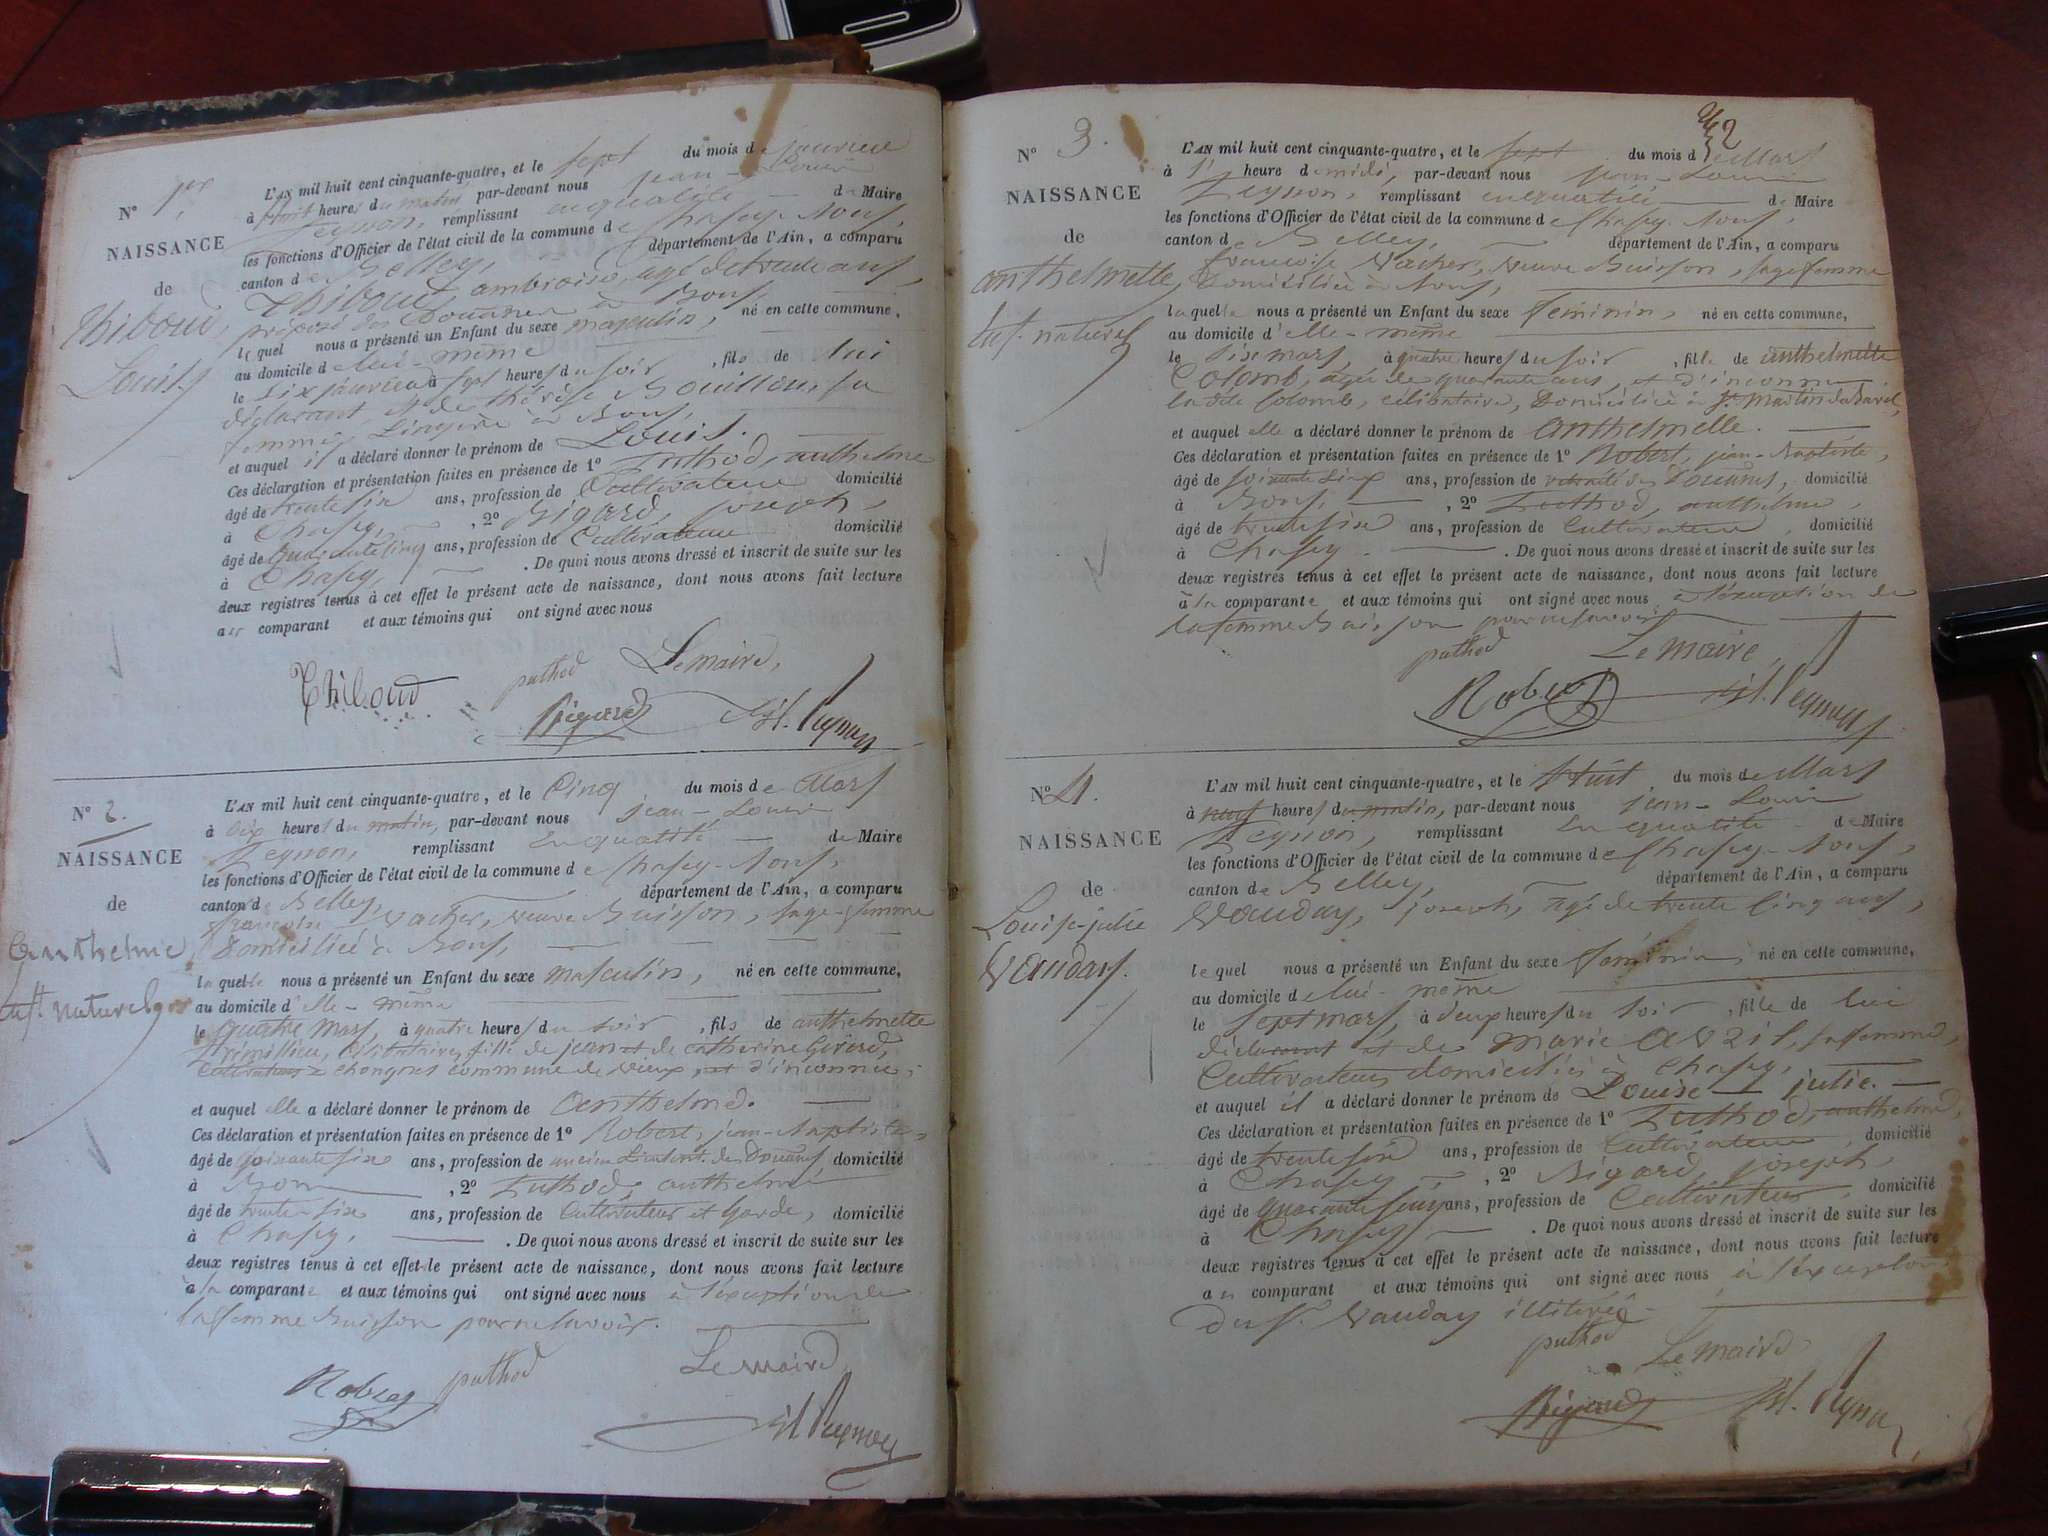 N° 1er
NAISSANCE
de
Thiboud,
Louis
L'AN mil huit cent cinquante-quatre, et le sept du mois de janvier
à huit heures du matin par-devant nous jean-Louis
Peysson, remplissant en qualité de Maire
les fonctions d'Officier de l'état civil de la commune de Chasey-Bons,
canton de Belley, département de l'Ain, a comparu
Thiboud, ambroise, agé de trente ans,
préposé des Douanes à Bons,
lequel nous a présenté un Enfant du sexe masculin, né en cette commune,
au domicile de lui-même
le six janvier à sept heures du soir, fils de lui
déclarant, et de thérèse Bouillon, sa
femme, Lingère à Bons,
et auquel il a déclaré donner le prénom de Louis.
Ces déclaration et présentation faites en présence de 1° Puthod, anthelme
âgé de trente six ans, profession de Cultivateur domicilié
à Chasey, , 2° Bigard, joseph,
âgé de quarante cinq ans, profession de Cultivateur domicilié
à Chasey, . De quoi nous avons dressé et inscrit de suite sur les
deux registres tenus à cet effet le présent acte de naissance, dont nous avons fait lecture
au comparant et aux témoins qui ont signé avec nous
Thiboud puthod Le maire,
Bigard Peysson
N° 2.
NAISSANCE
de
Anthelme
enft naturel
L'AN mil huit cent cinquante-quatre, et le Cinq du mois de Mars
à dix heures du matin, par-devant nous jean-Louis
Peysson, remplissant en qualité de Maire
les fonctions d'Officier de l'état civil de la commune de Chasey-Bons,
canton de Belley, département de l'Ain, a comparu
françoise Vacher, veuve Buisson, sage-femme
Domiciliée à Bons,
laquelle nous a présenté un Enfant du sexe masculin, né en cette commune,
au domicile d'elle-même
le quatre Mars, à quatre heures du soir, fils de anthelmette
célibataire, fille de jean et de catherine
Cultivateurs à commune de vieux, et d'inconnu;
et auquel elle a déclaré donner le prénom de Anthelme.
Ces déclaration et présentation faites en présence de 1° Robert, jean-Baptiste,
âgé de soixante six ans, profession de ancien Lieutent. des Douanes, domicilié
à Bons , 2° Puthod, anthelme
âgé de trente-six ans, profession de Cultivateur et Garde, domicilié
à Chasey, . De quoi nous avons dressé et inscrit de suite sur les
deux registres tenus à cet effet le présent acte de naissance, dont nous avons fait lecture
à la comparante et aux témoins qui ont signé avec nous à l'exception de
la femme Buisson pour ne savoir.
Robert puthod Le maire
Peysson
32
N° 3.
NAISSANCE
de
anthelmette,
enft. naturel
L'AN mil huit cent cinquante-quatre, et le sept du mois de Mars
à 1 heure de midi, par-devant nous jean-Louis
Peysson, remplissant en qualité de Maire
les fonctions d'Officier de l'état civil de la commune de Chasey-Bons,
canton de Belley, département de l'Ain, a comparu
françoise Vacher, veuve Buisson, sage femme
Domiciliée à Bons,
laquelle nous a présenté un Enfant du sexe féminin, né en cette commune,
au domicile d'elle-même
le six mars, à quatre heures du soir, fille de anthelmette
Colomb, agée de quarante ans, et d'inconnu
la dite Colomb, célibataire, Domiciliée à St. Martin de Bavel,
et auquel elle a déclaré donner le prénom de anthelmette.
Ces déclaration et présentation faites en présence de 1° Robert, jean-Baptiste,
âgé de soixante six ans, profession de retraité des Douanes, domicilié
à Bons, , 2° Puthod, anthelme,
âgé de trente six ans, profession de Cultivateur, domicilié
à Chasey. . De quoi nous avons dressé et inscrit de suite sur les
deux registres tenus à cet effet le présent acte de naissance, dont nous avons fait lecture
à la comparante et aux témoins qui ont signé avec nous à l'exception de
la femme Buisson pour ne savoir
puthod Le maire,
Robert Peysson
N° 4.
NAISSANCE
de
Louise-julie
Vauday.
L'AN mil huit cent cinquante-quatre, et le Huit du mois de Mars
à neuf heures du matin, par-devant nous jean-Louis
Peysson, remplissant en qualité de Maire
les fonctions d'Officier de l'état civil de la commune de Chasey-Bons,
canton de Belley, département de l'Ain, a comparu
Vauday, joseph, agé de trente cinq ans,
lequel nous a présenté un Enfant du sexe féminin, né en cette commune,
au domicile de lui-même
le sept mars, à deux heures du soir, fille de lui
déclarant et de marie avril, sa femme,
Cultivateurs domiciliés à Chasey,
et auquel il a déclaré donner le prénom de Louise-julie.
Ces déclaration et présentation faites en présence de 1° Puthod, anthelme,
âgé de trente six ans, profession de Cultivateur, domicilié
à Chasey , 2° Bigard, joseph,
âgé de quarante cinq ans, profession de Cultivateur, domicilié
à Chasey . De quoi nous avons dressé et inscrit de suite sur les
deux registres tenus à cet effet le présent acte de naissance, dont nous avons fait lecture
au comparant et aux témoins qui ont signé avec nous à l'exception
du Sr. Vauday illitéré
puthod Le maire
Bigard Peysson